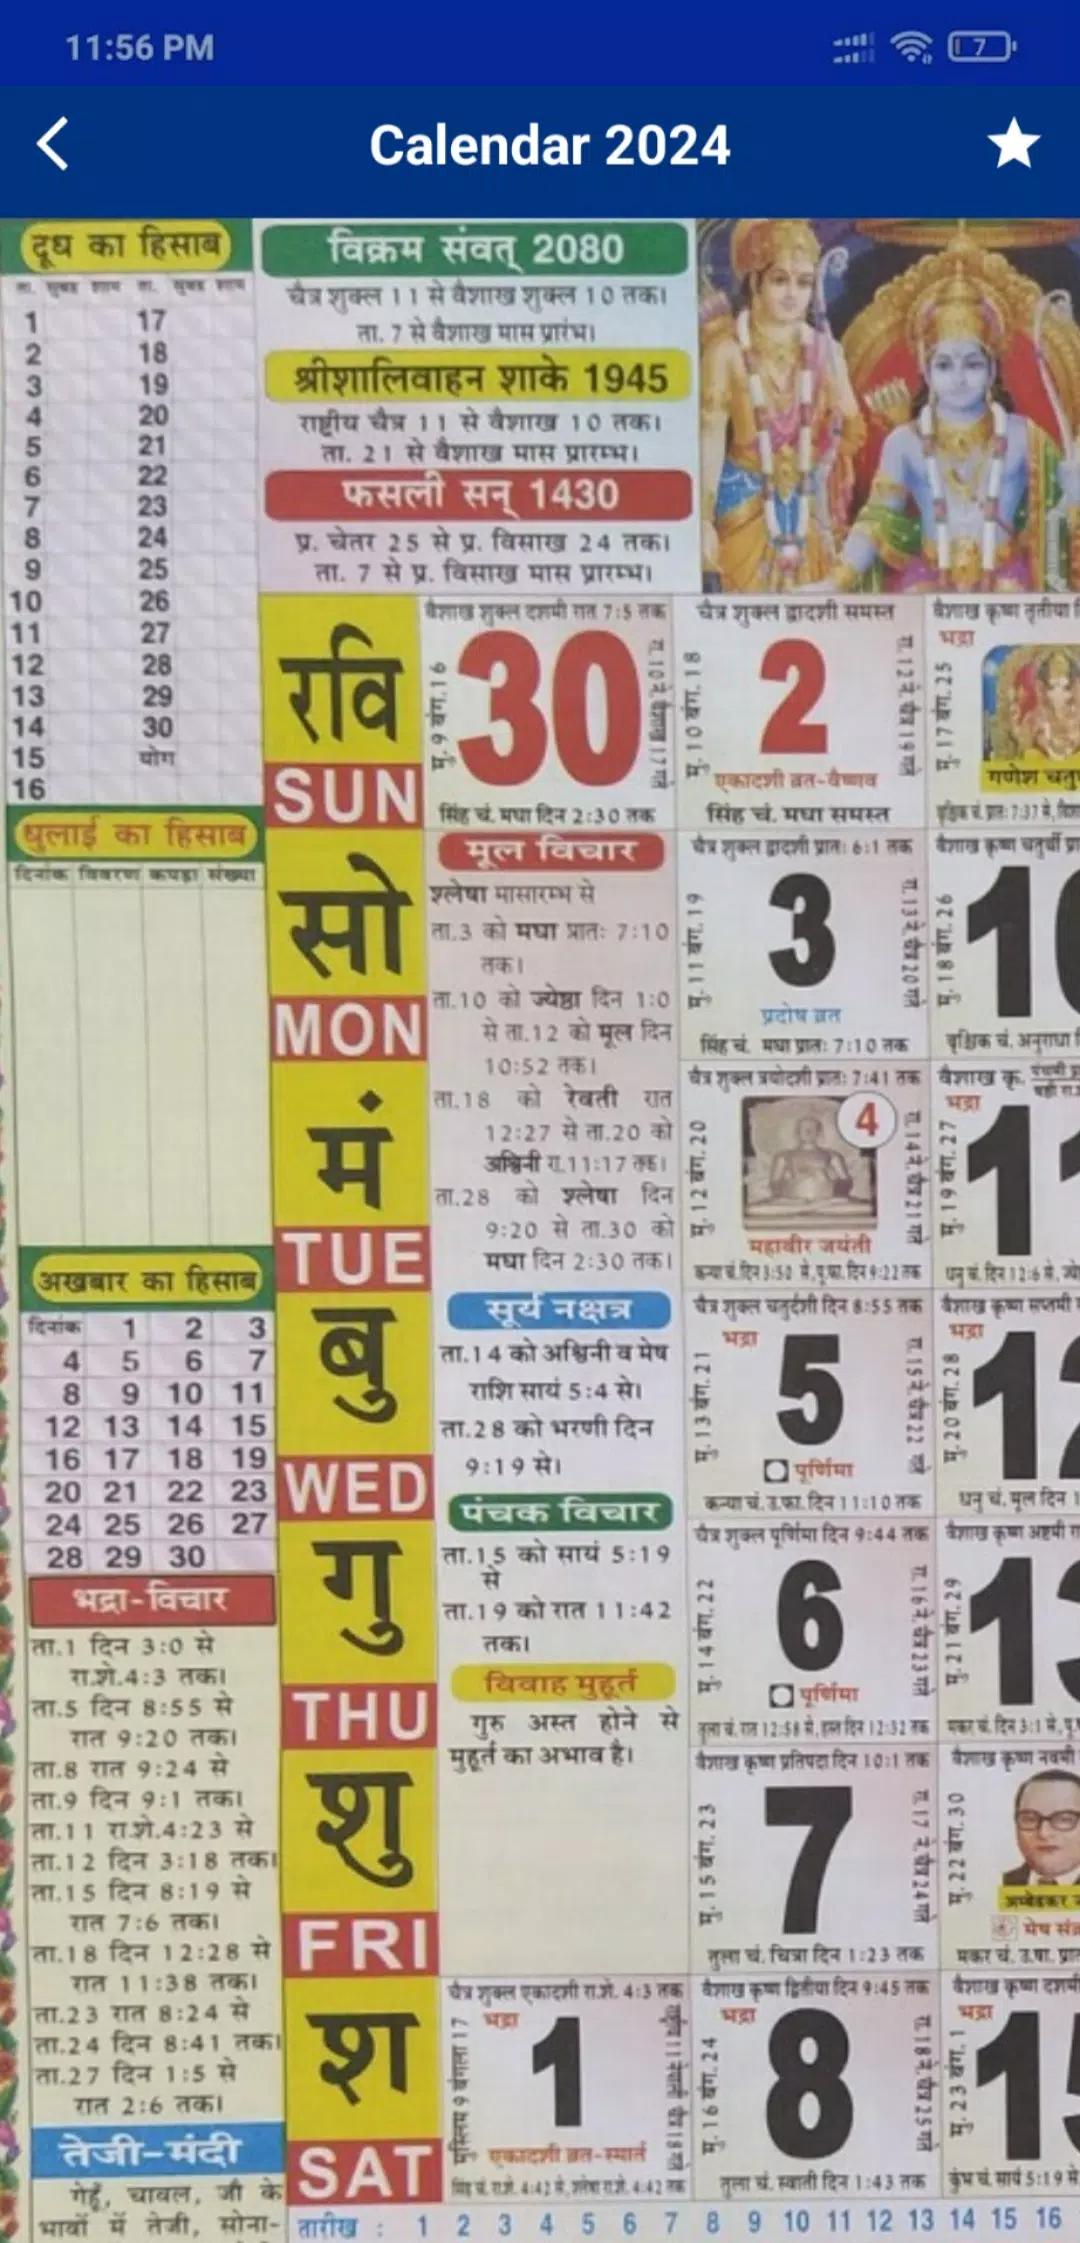 11:56 PM
7
Calendar 2024
दूध का हिसाब
ता. सुबह शाम ता. सुबह शाम
1 17
2 18
3 19
4 20
5 21
6 22
7 23
8 24
9 25
10 26
11 27
12 28
13 29
14 30
15 योग
16
धुलाई का हिसाब
दिनांक विवरण कपड़ा संख्या
अखबार का हिसाब
दिनांक 1 2 3
4 5 6 7
8 9 10 11
12 13 14 15
16 17 18 19
20 21 22 23
24 25 26 27
28 29 30
भद्रा-विचार
ता.1 दिन 3:0 से
रा.शे.4:3 तक।
ता.5 दिन 8:55 से
रात 9:20 तक।
ता.8 रात 9:24 से
ता.9 दिन 9:1 तक।
ता.11 रा.शे.4:23 से
ता.12 दिन 3:18 तक।
ता.15 दिन 8:19 से
रात 7:6 तक।
ता.18 दिन 12:28 से
रात 11:38 तक।
ता.23 रात 8:24 से
ता.24 दिन 8:41 तक।
ता.27 दिन 1:5 से
रात 2:6 तक।
तेजी-मंदी
गेहूँ, चावल, जौ के
भावों में तेजी, सोना-
विक्रम संवत् 2080
चैत्र शुक्ल 11 से वैशाख शुक्ल 10 तक।
ता. 7 से वैशाख मास प्रारंभ।
श्रीशालिवाहन शाके 1945
राष्ट्रीय चैत्र 11 से वैशाख 10 तक।
ता. 21 से वैशाख मास प्रारम्भ।
फसली सन् 1430
प्र. चेतर 25 से प्र. विसाख 24 तक।
ता. 7 से प्र. विसाख मास प्रारम्भ।
रवि
SUN
वैशाख शुक्ल दशमी रात 7:5 तक
मु. 9 बंग.16
30
रा.10 ने.वैशाख 17 गते
सिंह चं. मघा दिन 2:30 तक
चैत्र शुक्ल द्वादशी समस्त
मु. 10 बंग. 18
2
रा.12 ने. चैत्र 19 गते
एकादशी व्रत-वैष्णव
सिंह चं. मघा समस्त
वैशाख कृष्ण तृतीया
भद्रा
मु. 17 बंग. 25
गणेश चतु
वृश्चिक चं. प्रातः 7:37 से,
सो
MON
मूल विचार
श्लेषा मासारम्भ से
ता.3 को मघा प्रातः 7:10
तक।
ता.10 को ज्येष्ठा दिन 1:0
से ता.12 को मूल दिन
10:52 तक।
ता.18 को रेवती रात
12:27 से ता.20 को
अश्विनी रा.11:17 तक।
ता.28 को श्लेषा दिन
9:20 से ता.30 को
मघा दिन 2:30 तक।
चैत्र शुक्ल द्वादशी प्रातः 6:1 तक
मु. 11 बंग. 19
3
रा.13 ने. चैत्र 20 गते
प्रदोष व्रत
सिंह चं. मघा प्रातः 7:10 तक
वैशाख कृष्ण चतुर्थी प्रा
मु. 18 बंग. 26
10
वृश्चिक चं. अनुराधा
मं
TUE
चैत्र शुक्ल त्रयोदशी प्रातः 7:41 तक
मु. 12 बंग. 20
4
रा.14 ने. चैत्र 21 गते
महावीर जयंती
कन्या चं. दिन 3:50 से, पू.फा. दिन 9:22 तक
वैशाख कृ. पंचमी
भद्रा
मु. 19 बंग. 27
11
धनु चं. दिन 12:6 से, ज्ये
बु
WED
सूर्य नक्षत्र
ता.14 को अश्विनी व मेष
राशि सायं 5:4 से।
ता.28 को भरणी दिन
9:19 से।
चैत्र शुक्ल चतुर्दशी दिन 8:55 तक
भद्रा
मु. 13 बंग. 21
5
रा.15 ने. चैत्र 22 गते
पूर्णिमा
कन्या चं. उ.फा. दिन 11:10 तक
वैशाख कृष्ण सप्तमी
भद्रा
मु. 20 बंग. 28
12
धनु चं. मूल दिन 1
गु
THU
पंचक विचार
ता.15 को सायं 5:19
से
ता.19 को रात 11:42
तक।
विवाह मुहूर्त
गुरु अस्त होने से
मुहूर्त का अभाव है।
चैत्र शुक्ल पूर्णिमा दिन 9:44 तक
मु. 14 बंग. 22
6
रा.16 ने. चैत्र 23 गते
पूर्णिमा
तुला चं. रात 12:58 से, हस्त दिन 12:32 तक
वैशाख कृष्ण अष्टमी रा
मु. 21 बंग. 29
13
मकर चं. दिन 3:1 से, पू.
शु
FRI
वैशाख कृष्ण प्रतिपदा दिन 10:1 तक
मु. 15 बंग. 23
7
रा.17 ने. चैत्र 24 गते
तुला चं. चित्रा दिन 1:23 तक
वैशाख कृष्ण नवमी
मु. 22 बंग. 30
अम्बेडकर
मेष संक्र
मकर चं. उ.षा. प्रात
श
SAT
चैत्र शुक्ल एकादशी रा.शे. 4:3 तक
भद्रा
मुस्लिम 9 बंगला 17
1
एकादशी व्रत-स्मार्त
सिंह चं. रा.शे. 4:42 से, श्लेषा रा.शे. 4:42 तक
वैशाख कृष्ण द्वितीया दिन 9:45 तक
भद्रा
मु. 16 बंग. 24
8
रा.18 ने. चैत्र 25 गते
तुला चं. स्वाती दिन 1:43 तक
वैशाख कृष्ण दशमी
भद्रा
मु. 23 बंग. 1
15
कुंभ चं. सायं 5:19 से
तारीख : 1 2 3 4 5 6 7 8 9 10 11 12 13 14 15 16